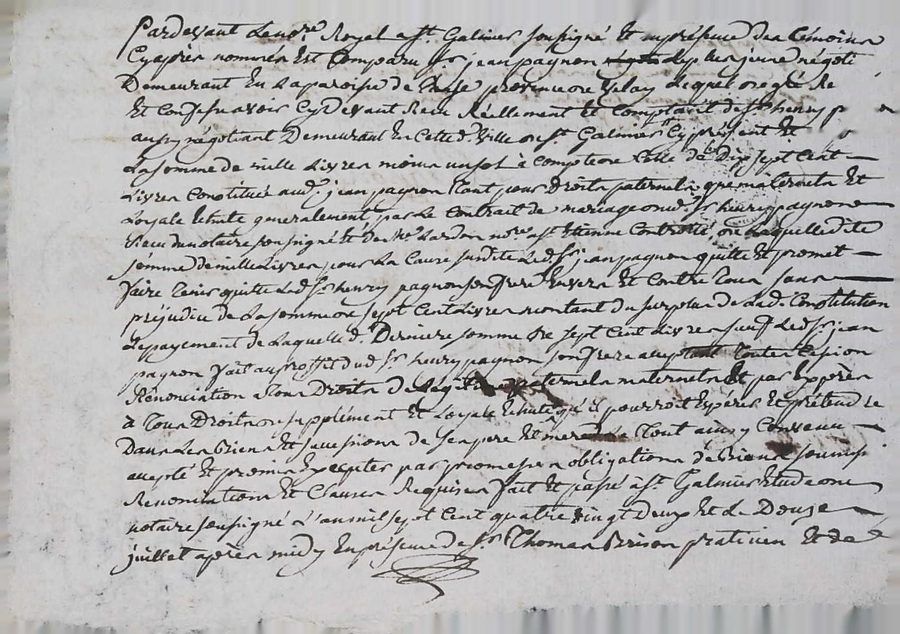 Pardevant Le no.re Royal a St. Galmier soussigné Et en presence des temoins
Cy après nommés Est Comparu Sr jean pagnon Le plus jeune négoti
Demeurant En La paroisse de province de velay Lequel de gré Re
Et Confesse avoir Cy Devant Receu Réellement et Comptant de Sr henry p
aussy négotiant Demeurant En Cette d. Ville de St. Galmier Cy présent Et
La somme de mille Livres moins un sol à compte de Celle de Dix sept Cent
Livres Constituée aud. jean pagnon Tant pour Droits paternels que maternels Et
Loyale Echute generalement par Le Contrait de mariage dud. Sr henry pagnon
Receu du notaire soussigné Et de Me Lardon nore. a St. Etienne Controllé de Laquelle dite
somme de mille Livres pour La Cause susdite Led. Sr jean pagnon quitte Et promet
faire Tenir quitte Led. Sr henry pagnon son frere Envers Et Contre Tous sans
préjudice de La somme de sept Cent Livres restant du surplus de Lad. Constitution
Le payement de Laquelle d. Derniere somme de sept Cent Livres sauf Led. Sr jean
pagnon fait au proffit dud. Sr henry pagnon son frere acceptant Toutes Cession
Rénonciation a Tous Droits de Legitime paternels maternels Et par Exprès
à Tous Droits de supplément Et Loyale Echute qu'il pourroit Espérer Et prétendre
Dans Les Biens Et successions de ses pere Et mere Tout ainsy Convenu
accepté Et promis Executer par promesses obligations de Biens soumissi
Renonciations Et Clauses Requises fait Et passé a St. Galmier Etude de
notaire soussigné L'an mil sept Cent quatre vingt Deux Et Le Douze
juillet après midy En présence de Sr. Thomas Brison praticien Et de